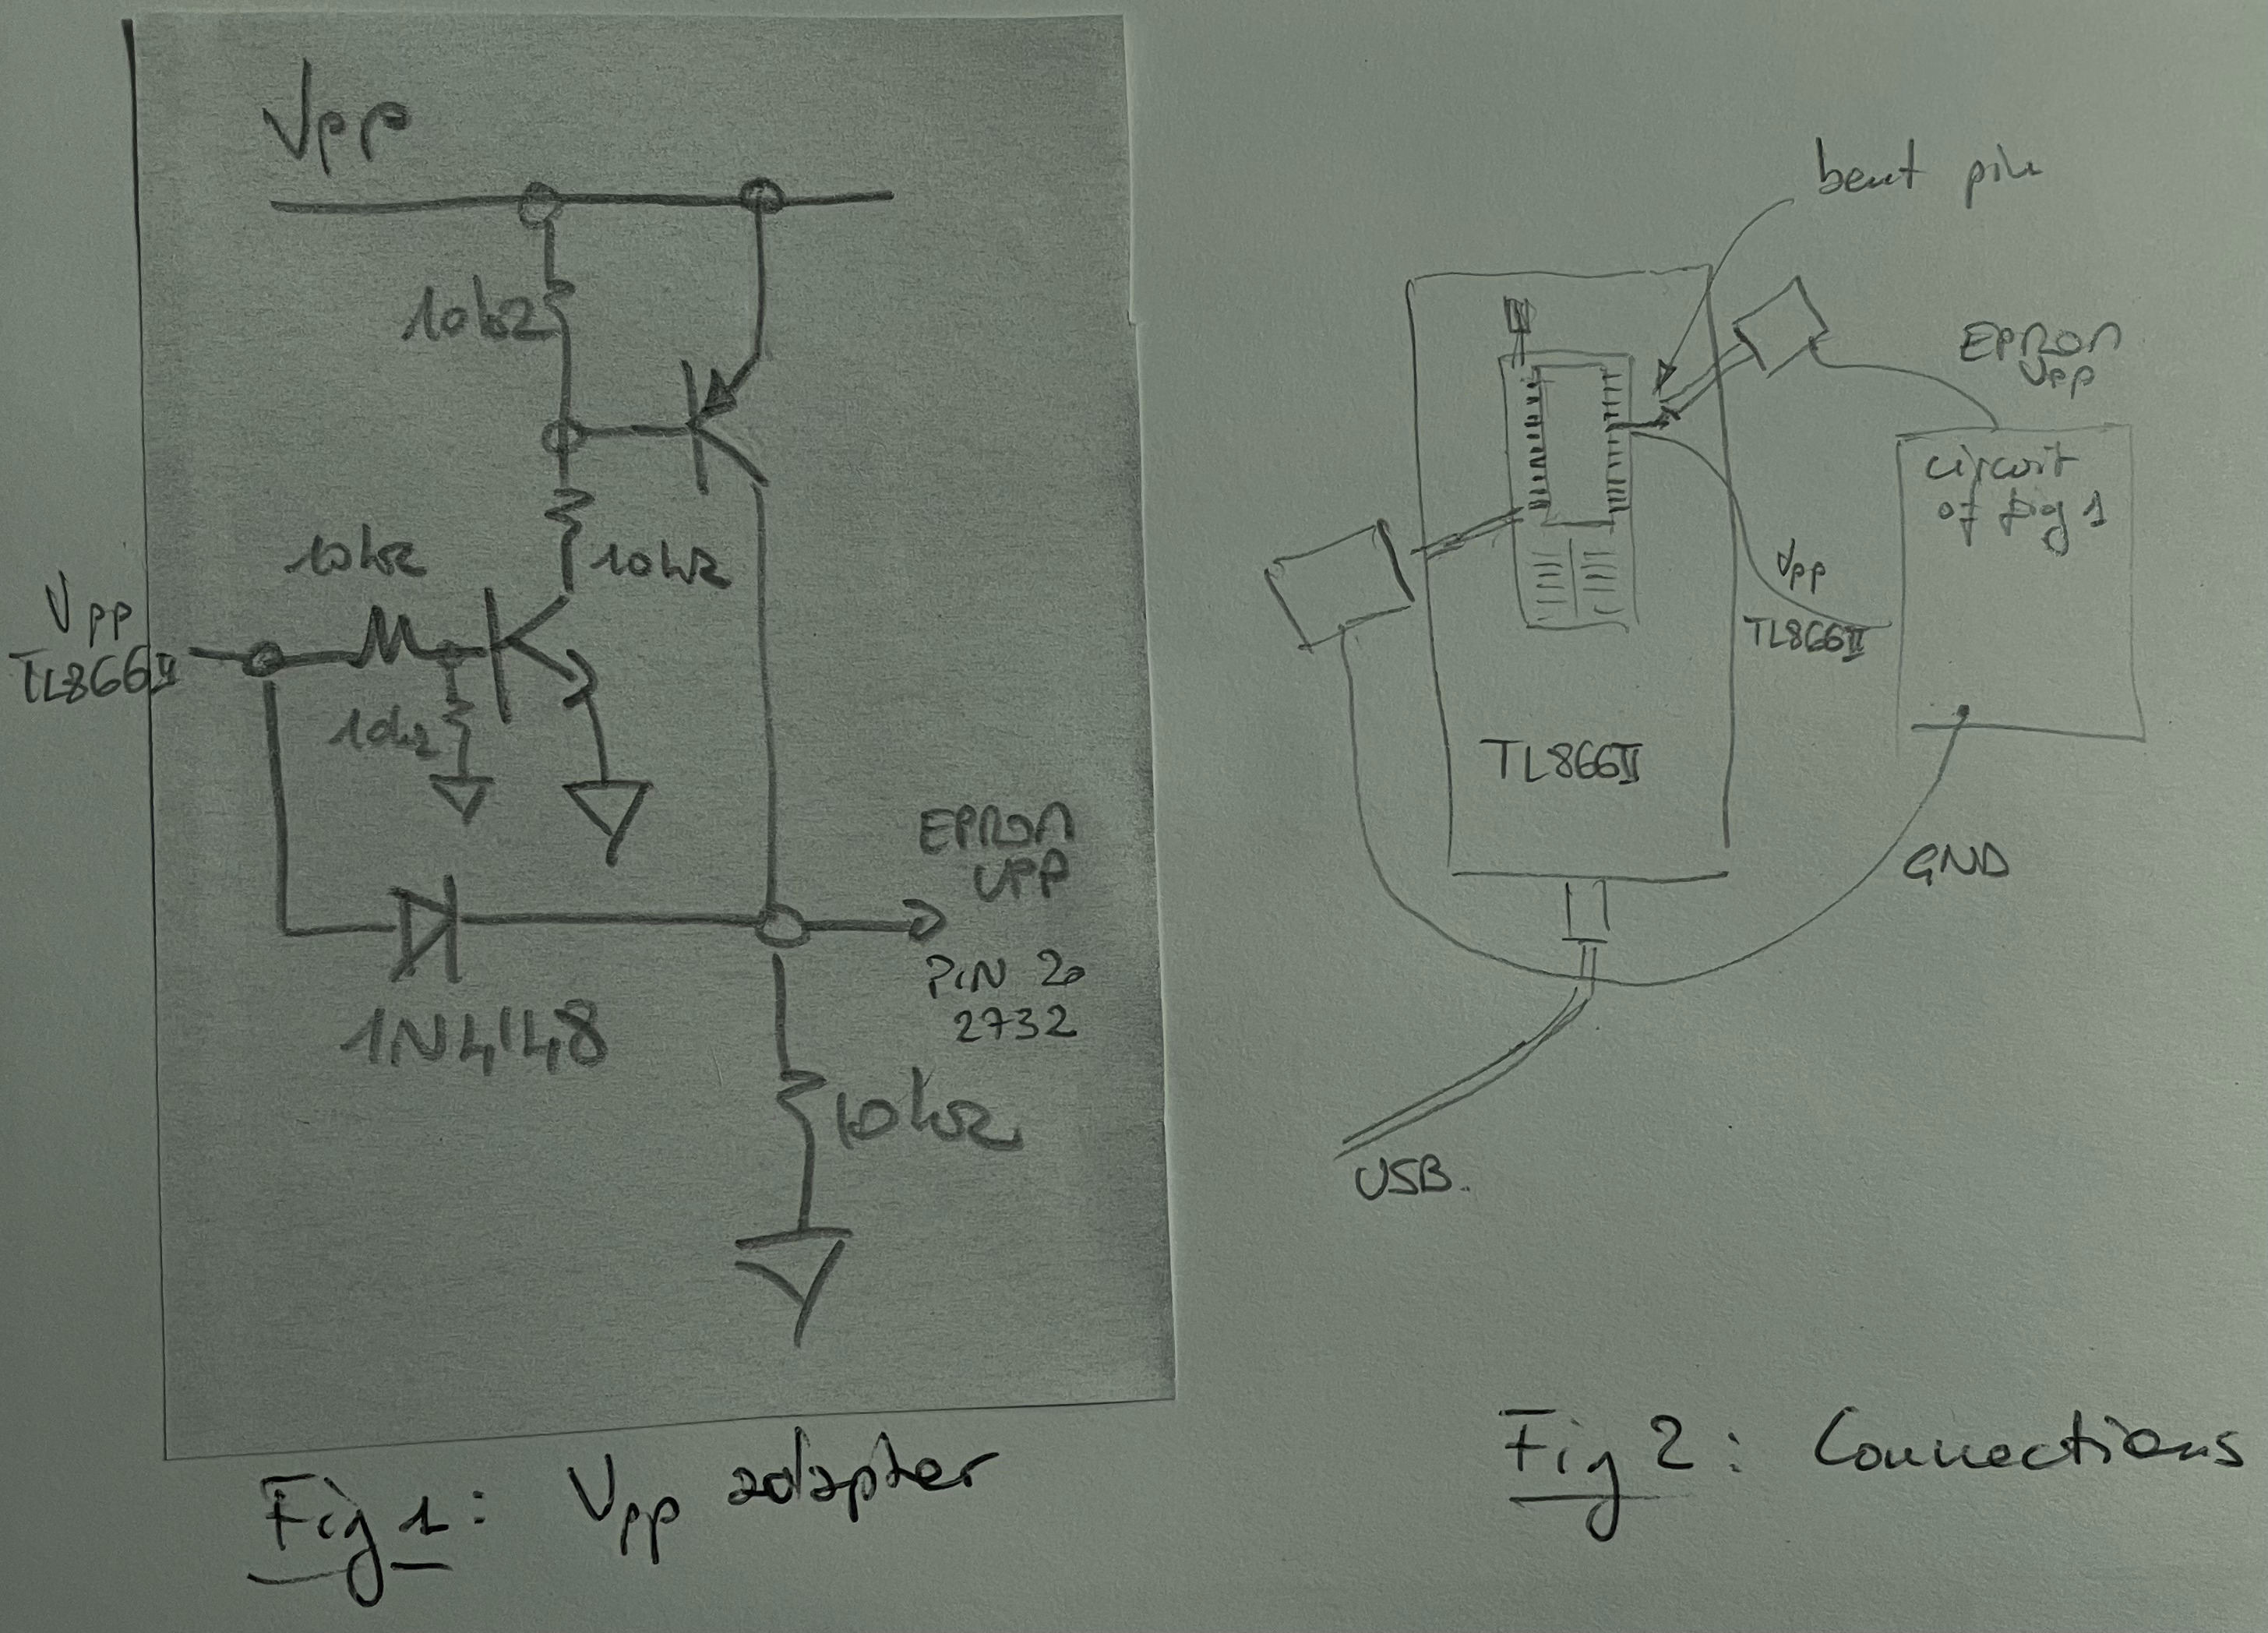 Vpp
10kΩ
10kΩ
10kΩ
Vpp
TL866II
10kΩ
EPROM
VPP
PIN 20
2732
1N4148
10kΩ
Fig 1: Vpp adapter
bent pin
EPROM
Vpp
circuit
of fig 1
Vpp
TL866II
TL866II
GND
USB.
Fig 2: Connections